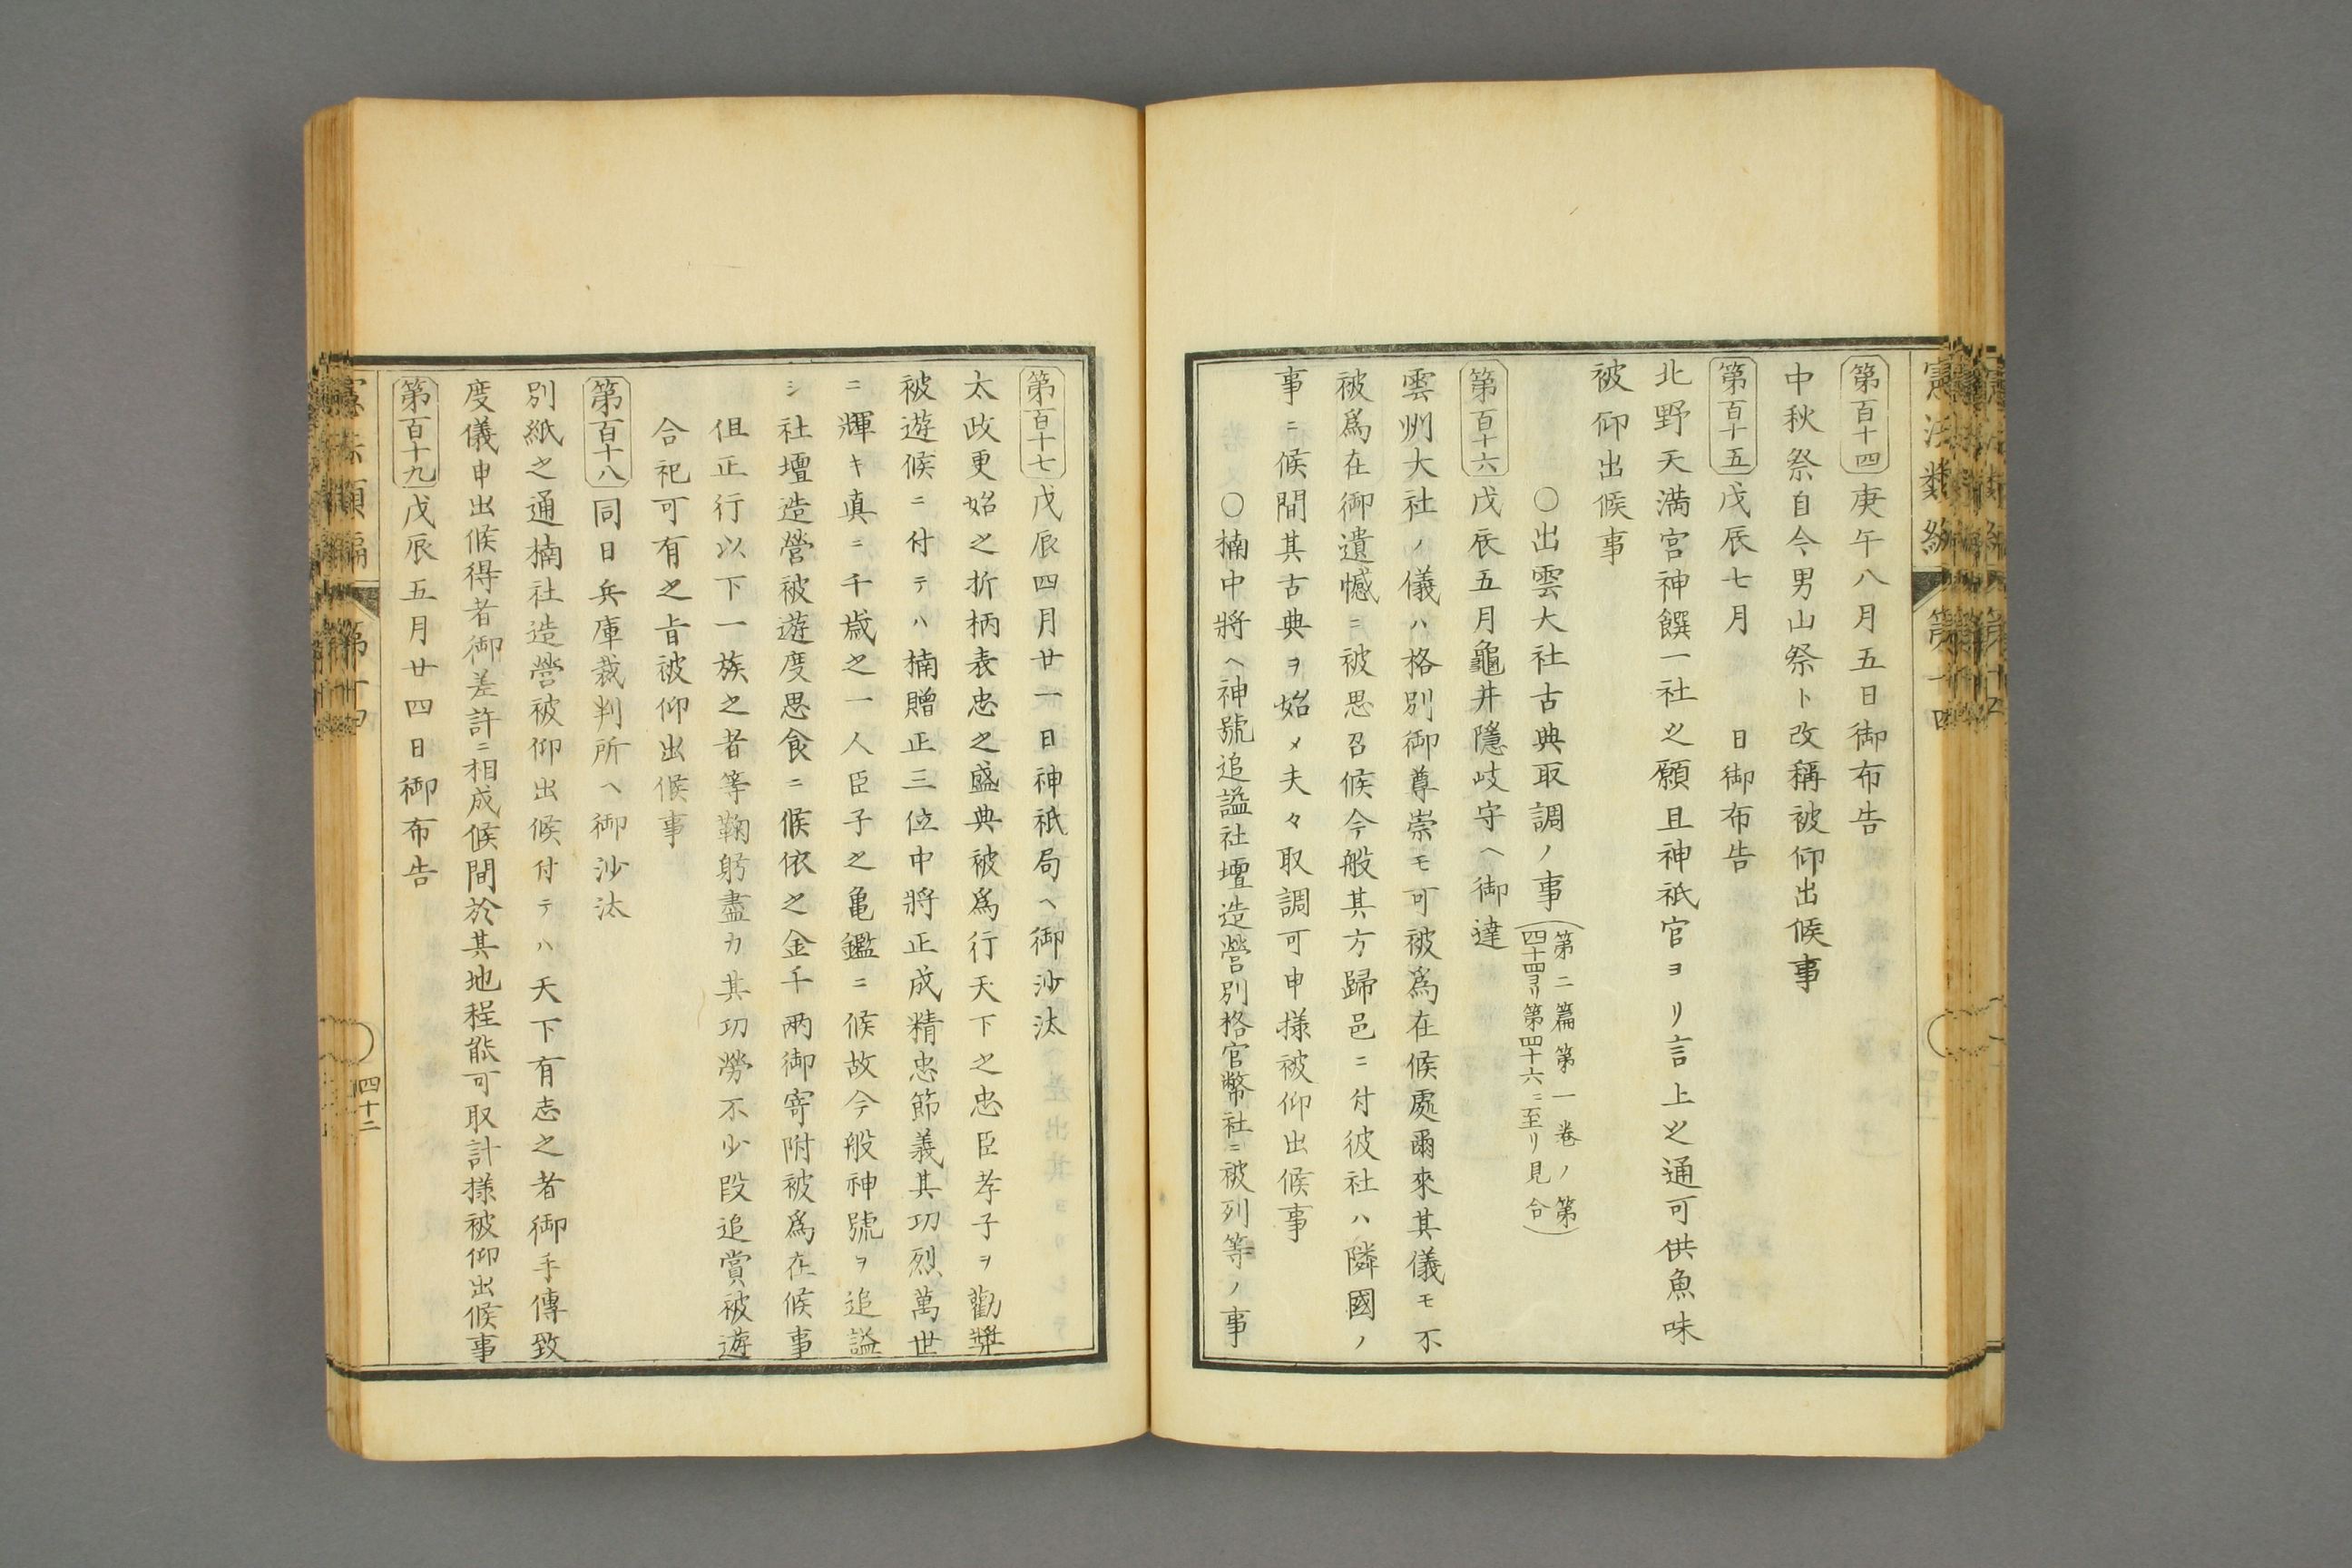 第百十四 庚午八月五日御布告
中秋祭自今男山祭ト改稱被仰出候事
第百十五 戊辰七月 日御布告
北野天満宮神饌一社之願且神祇官ヨリ言上之通可供魚味
被仰出候事
○出雲大社古典取調ノ事(第二篇第一巻ノ第
四十四ヨリ第四十六ニ至リ見合)
第百十六 戊辰五月龜井隱岐守ヘ御達
雲州大社ノ儀ハ格別御尊崇モ可被爲在候處爾來其儀モ不
被爲在御遺憾ニ被思召候今般其方歸邑ニ付彼社ハ隣國ノ
事ニ候間其古典ヲ始メ夫々取調可申樣被仰出候事
○楠中將ヘ神號追謚社壇造營別格官幣社ニ被列等ノ事
第百十七 戊辰四月廿一日神祇局ヘ御沙汰
太政更始之折柄表忠之盛典被爲行天下之忠臣孝子ヲ勸奬
被遊候ニ付テハ楠贈正三位中將正成精忠節義其功烈萬世
ニ輝キ真ニ千歳之一人臣子之亀鑑ニ候故今般神號ヲ追謚
シ社壇造營被遊度思食ニ候依之金千兩御寄附被爲在候事
但正行以下一族之者等鞠躬盡力其功勞不少段追賞被遊
合祀可有之旨被仰出候事
第百十八 同日兵庫裁判所ヘ御沙汰
別紙之通楠社造營被仰出候付テハ天下有志之者御手傳致
度儀申出候得者御差許ニ相成候間於其地程能可取計樣被仰出候事
第百十九 戊辰五月廿四日御布告
四十二